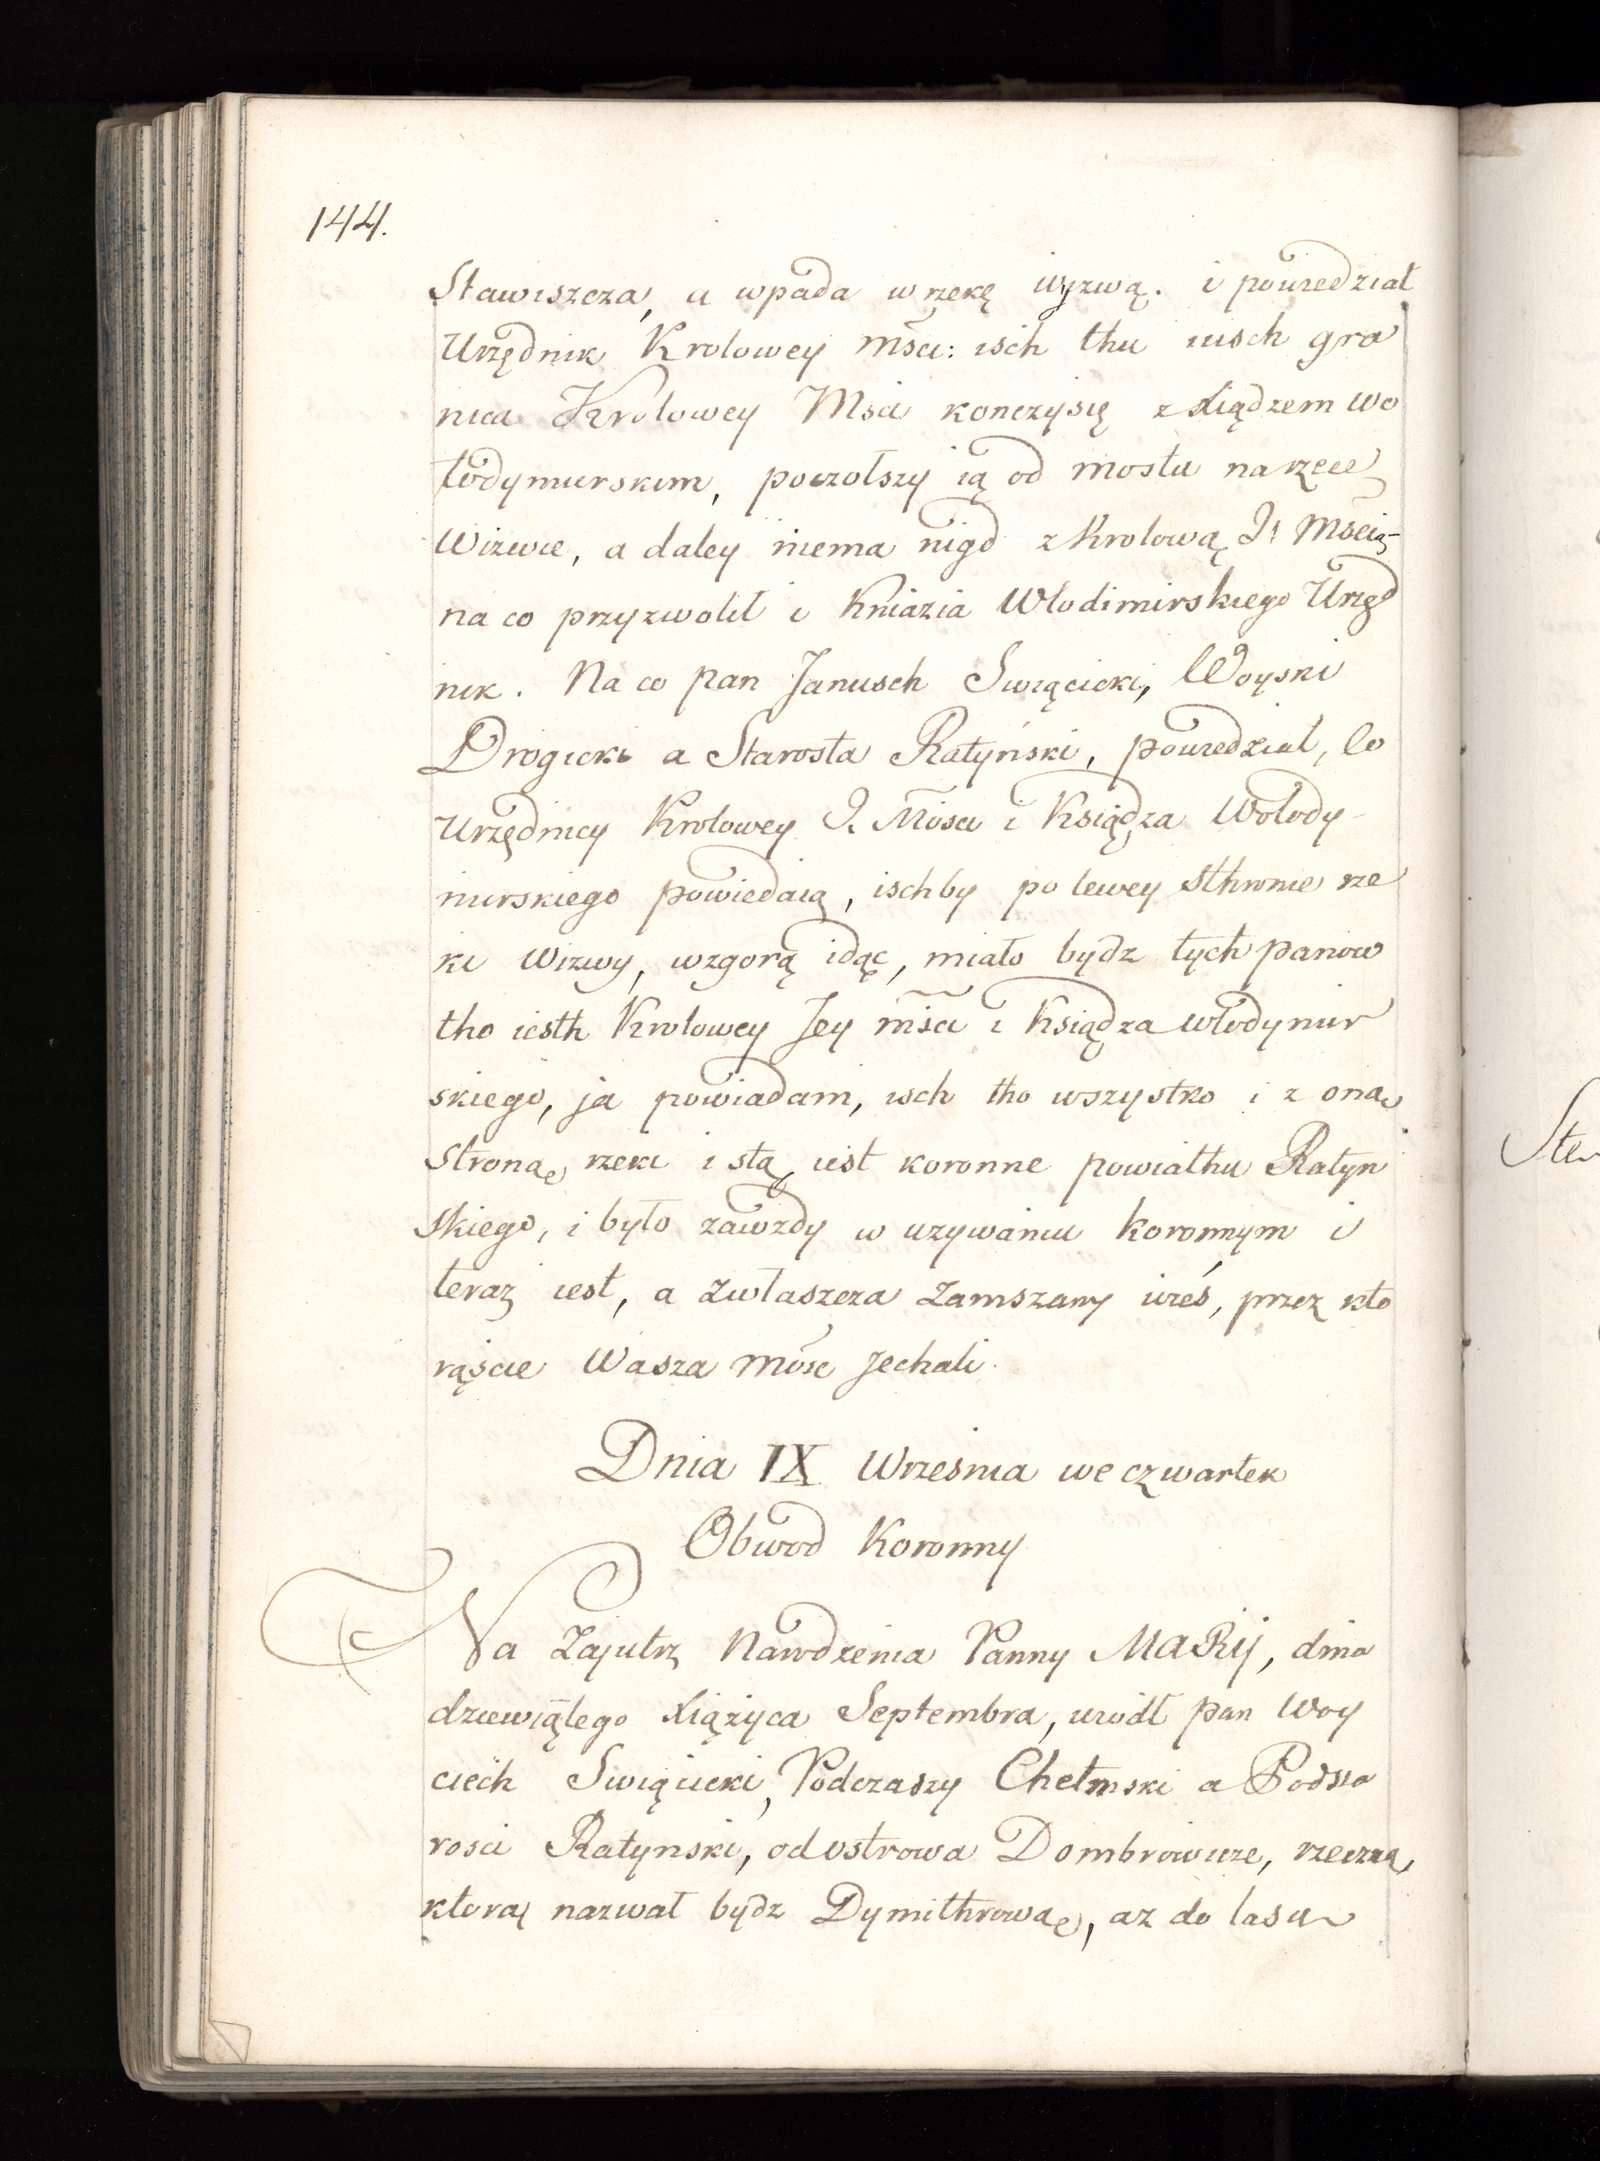 144.
Stawiszcza, u wpada w rzekę wyzwą. i powiedział
Urzędnik Krolowey mści: isch thu iusch gra
nica Krolowey Msci konczysię z Xiądzem Wo
łodymurskim, poczołszy ią od mostu na rzece
Wizwie, a daley niema nigd z Krolową Jr Mscią-
na co przyzwolił i Kniazia Włodimirskiego Urzęd
nik. Na co pan Janusch Swięcicki, Woyski
Drogicki a Starosta Ratyński, powiedział, Co
Urzędnicy Krolowey J. Mosci i Księdza Wołody-
murskiego powiedaią, ischby po lewey sthronie rze
ki Wizwy, wzgorą idąc, miało bydz tych panow
tho iesth Krolowey Jey mści i Księdza włodymir
skiego, ja powiadam, isch tho wszystko i z oną
stroną rzeki i stą iest koronne powiathu Ratyn
skiego, i było zawzdy w uzywaniu koronnym i
teraz iest, a zwłaszcza Zamszany wieś, przez kto
rąście Wasza Mość Jechali.
Dnia IX Wrzesnia we czwartek
Obwod Koronny
Na Zajutrz Narodzenia Panny MaRij, dnia
dziewiątego Xiążyca Septembra, wiodł pan Woy
ciech Swięcicki, Podczaszy Chełmski a Podsta
rosci Ratynski, od ostrowa Dombrowicze, rzeczką,
ktorą nazwał bydz Dymithrową, az do lasu